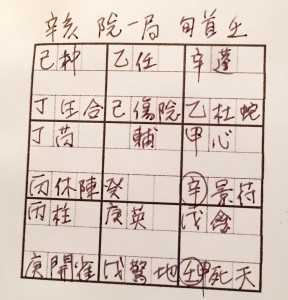 辛亥 陰一局 旬首壬
己沖 乙任 辛蓬
丁生合 己傷陰 乙杜蛇
丁芮 輔 甲心
丙休陳 癸 辛景符
丙柱 庚英 戊禽
庚開雀 戊驚地 壬甲死天